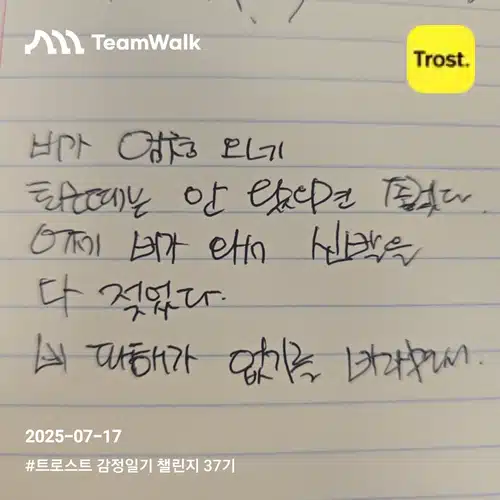 TeamWalk
Trost.
비가 엄청 오네
안 왔으면 좋겠다.
어제 비가 와서 신발을
다 젖었다.
비 피해가 없기를 바라면서.
2025-07-17
#트로스트 감정일기 챌린지 37기